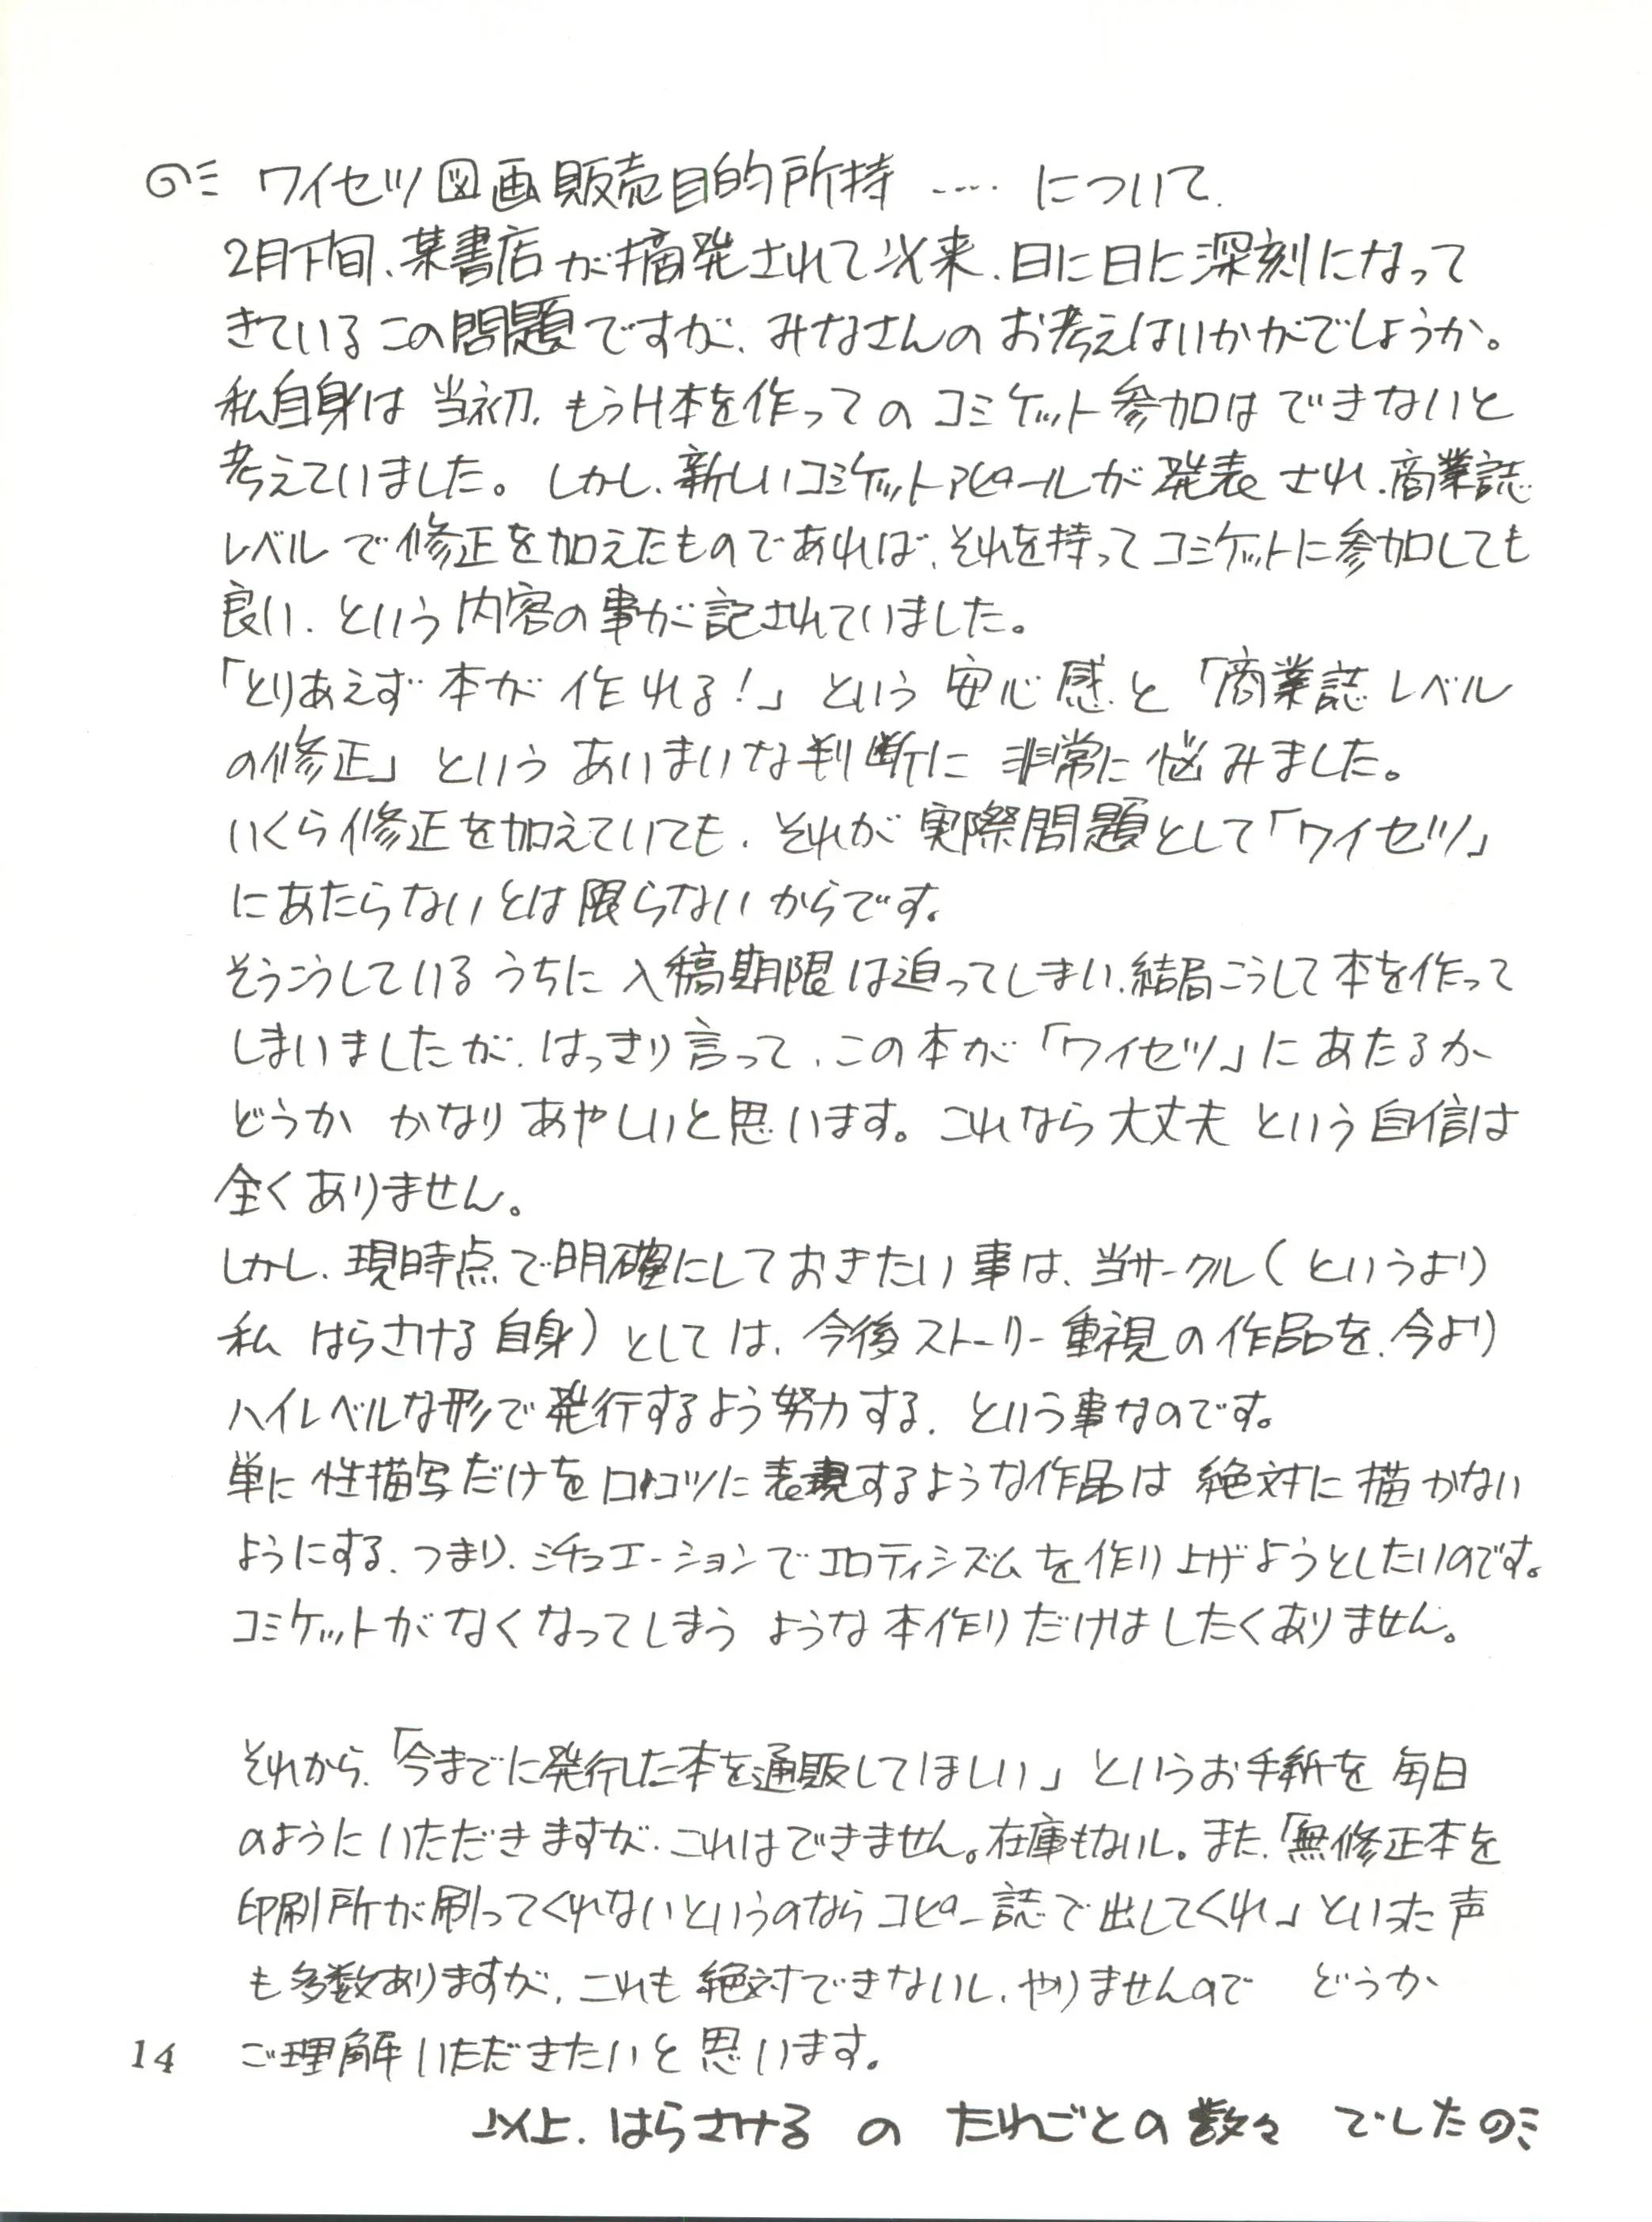 ワイセツ図画販売目的所持 ‥‥ について.
2月下旬、某書店が摘発されて以来、日に日に深刻になって
きているこの問題ですが、みなさんのお考えはいかがでしょうか。
私自身は当初、もうH本を作ってのコミケット参加はできないと
考えていました。しかし、新しいコミケットアピールが発表され、商業誌
レベルで修正を加えたものであれば、それを持ってコミケットに参加しても
良い、という内容の事が記されていました。
「とりあえず本が作れる!」という安心感と「商業誌レベル
の修正」というあいまいな判断に非常に悩みました。
いくら修正を加えていても、それが実際問題として「ワイセツ」
にあたらないとは限らないからです。
そうこうしているうちに入稿期限は迫ってしまい、結局こうして本を作って
しまいましたが、はっきり言って、この本が「ワイセツ」にあたるか
どうか かなりあやしいと思います。これなら大丈夫という自信は
全くありません。
しかし、現時点で明確にしておきたい事は、当サークル(というより
私 はらさける自身)としては、今後ストーリー重視の作品を、今より
ハイレベルな形で発行するよう努力する、という事なのです。
単に性描写だけをロコツに表現するような作品は絶対に描かない
ようにする、つまり、シチュエーションでエロティシズムを作り上げようとしたいのです。
コミケットがなくなってしまうような本作りだけはしたくありません。
それから、「今までに発行した本を通販してほしい」というお手紙を毎日
のようにいただきますが、これはできません。在庫もないし。また、「無修正本を
印刷所が刷ってくれないというのならコピー誌で出してくれ」といった声
も多数ありますが、これも絶対できないし、やりませんので どうか
ご理解いただきたいと思います。
14
以上、はらさける の たわごとの数々 でしたの